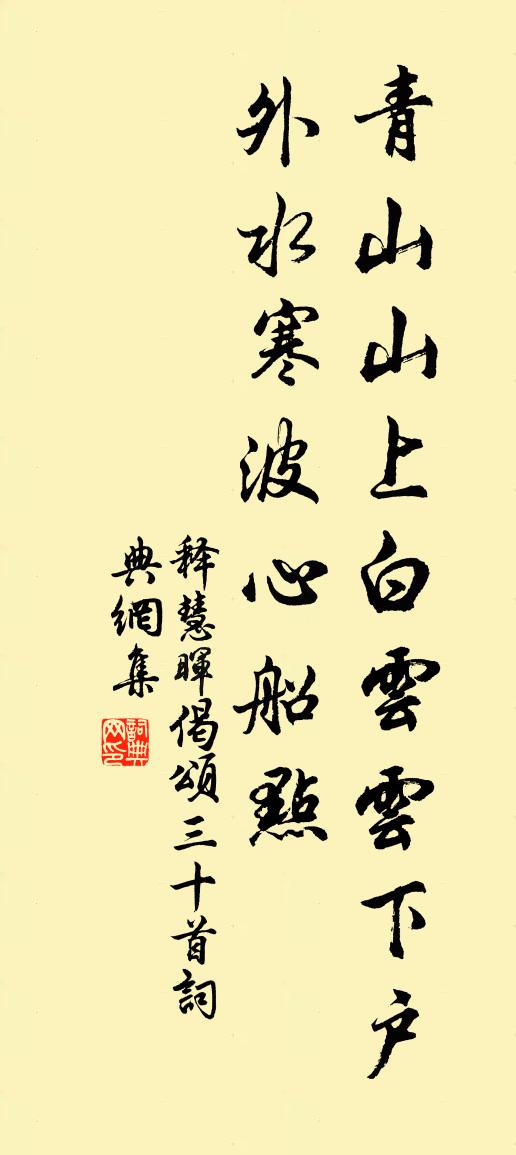 青山山上白雲雲下户
外水寒波心船點
释慧暉偈頌三十首詞
典網集
詞典網印